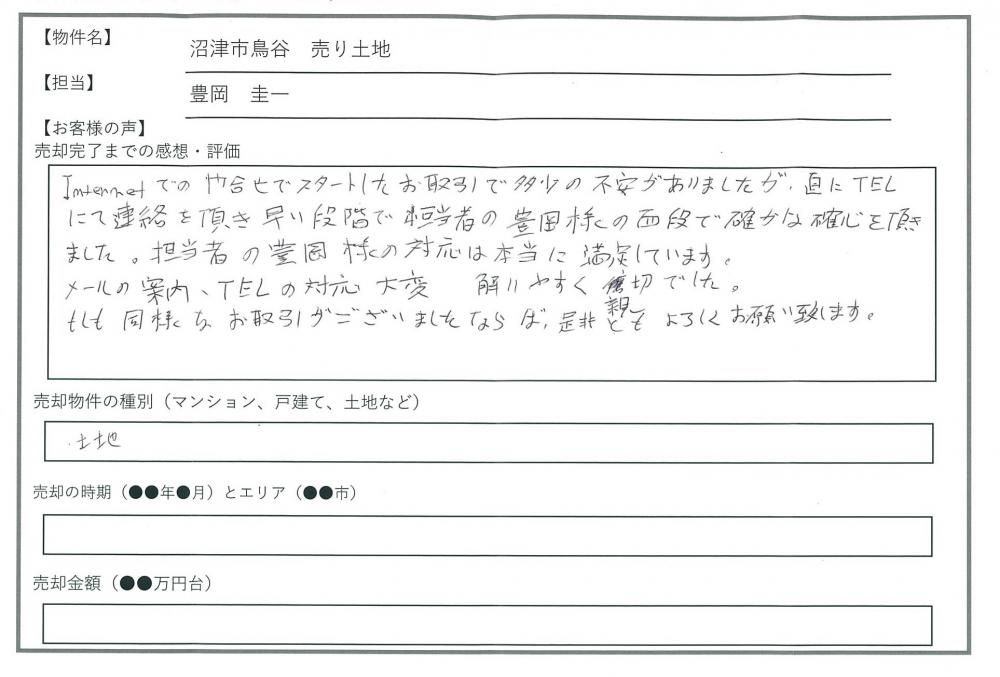 【物件名】
沼津市鳥谷　売り土地
【担当】
豊岡　圭一
【お客様の声】
売却完了までの感想・評価
Internetでの 合せでスタートしたお取引で多少の不安がありましたが、直にTEL
にて連絡を頂き早い段階で担当者の豊岡様の面段で確かな確心を頂き
ました。担当者の豊岡様の対応は本当に満足しています。
メールの案内、TELの対応 大変 解りやすく親切でした。
もしも同様なお取引がございましたならば、是非ともよろしくお願い致します。
売却物件の種別（マンション、戸建て、土地など）
土地
売却の時期（●●年●月）とエリア（●●市）
売却金額（●●万円台）